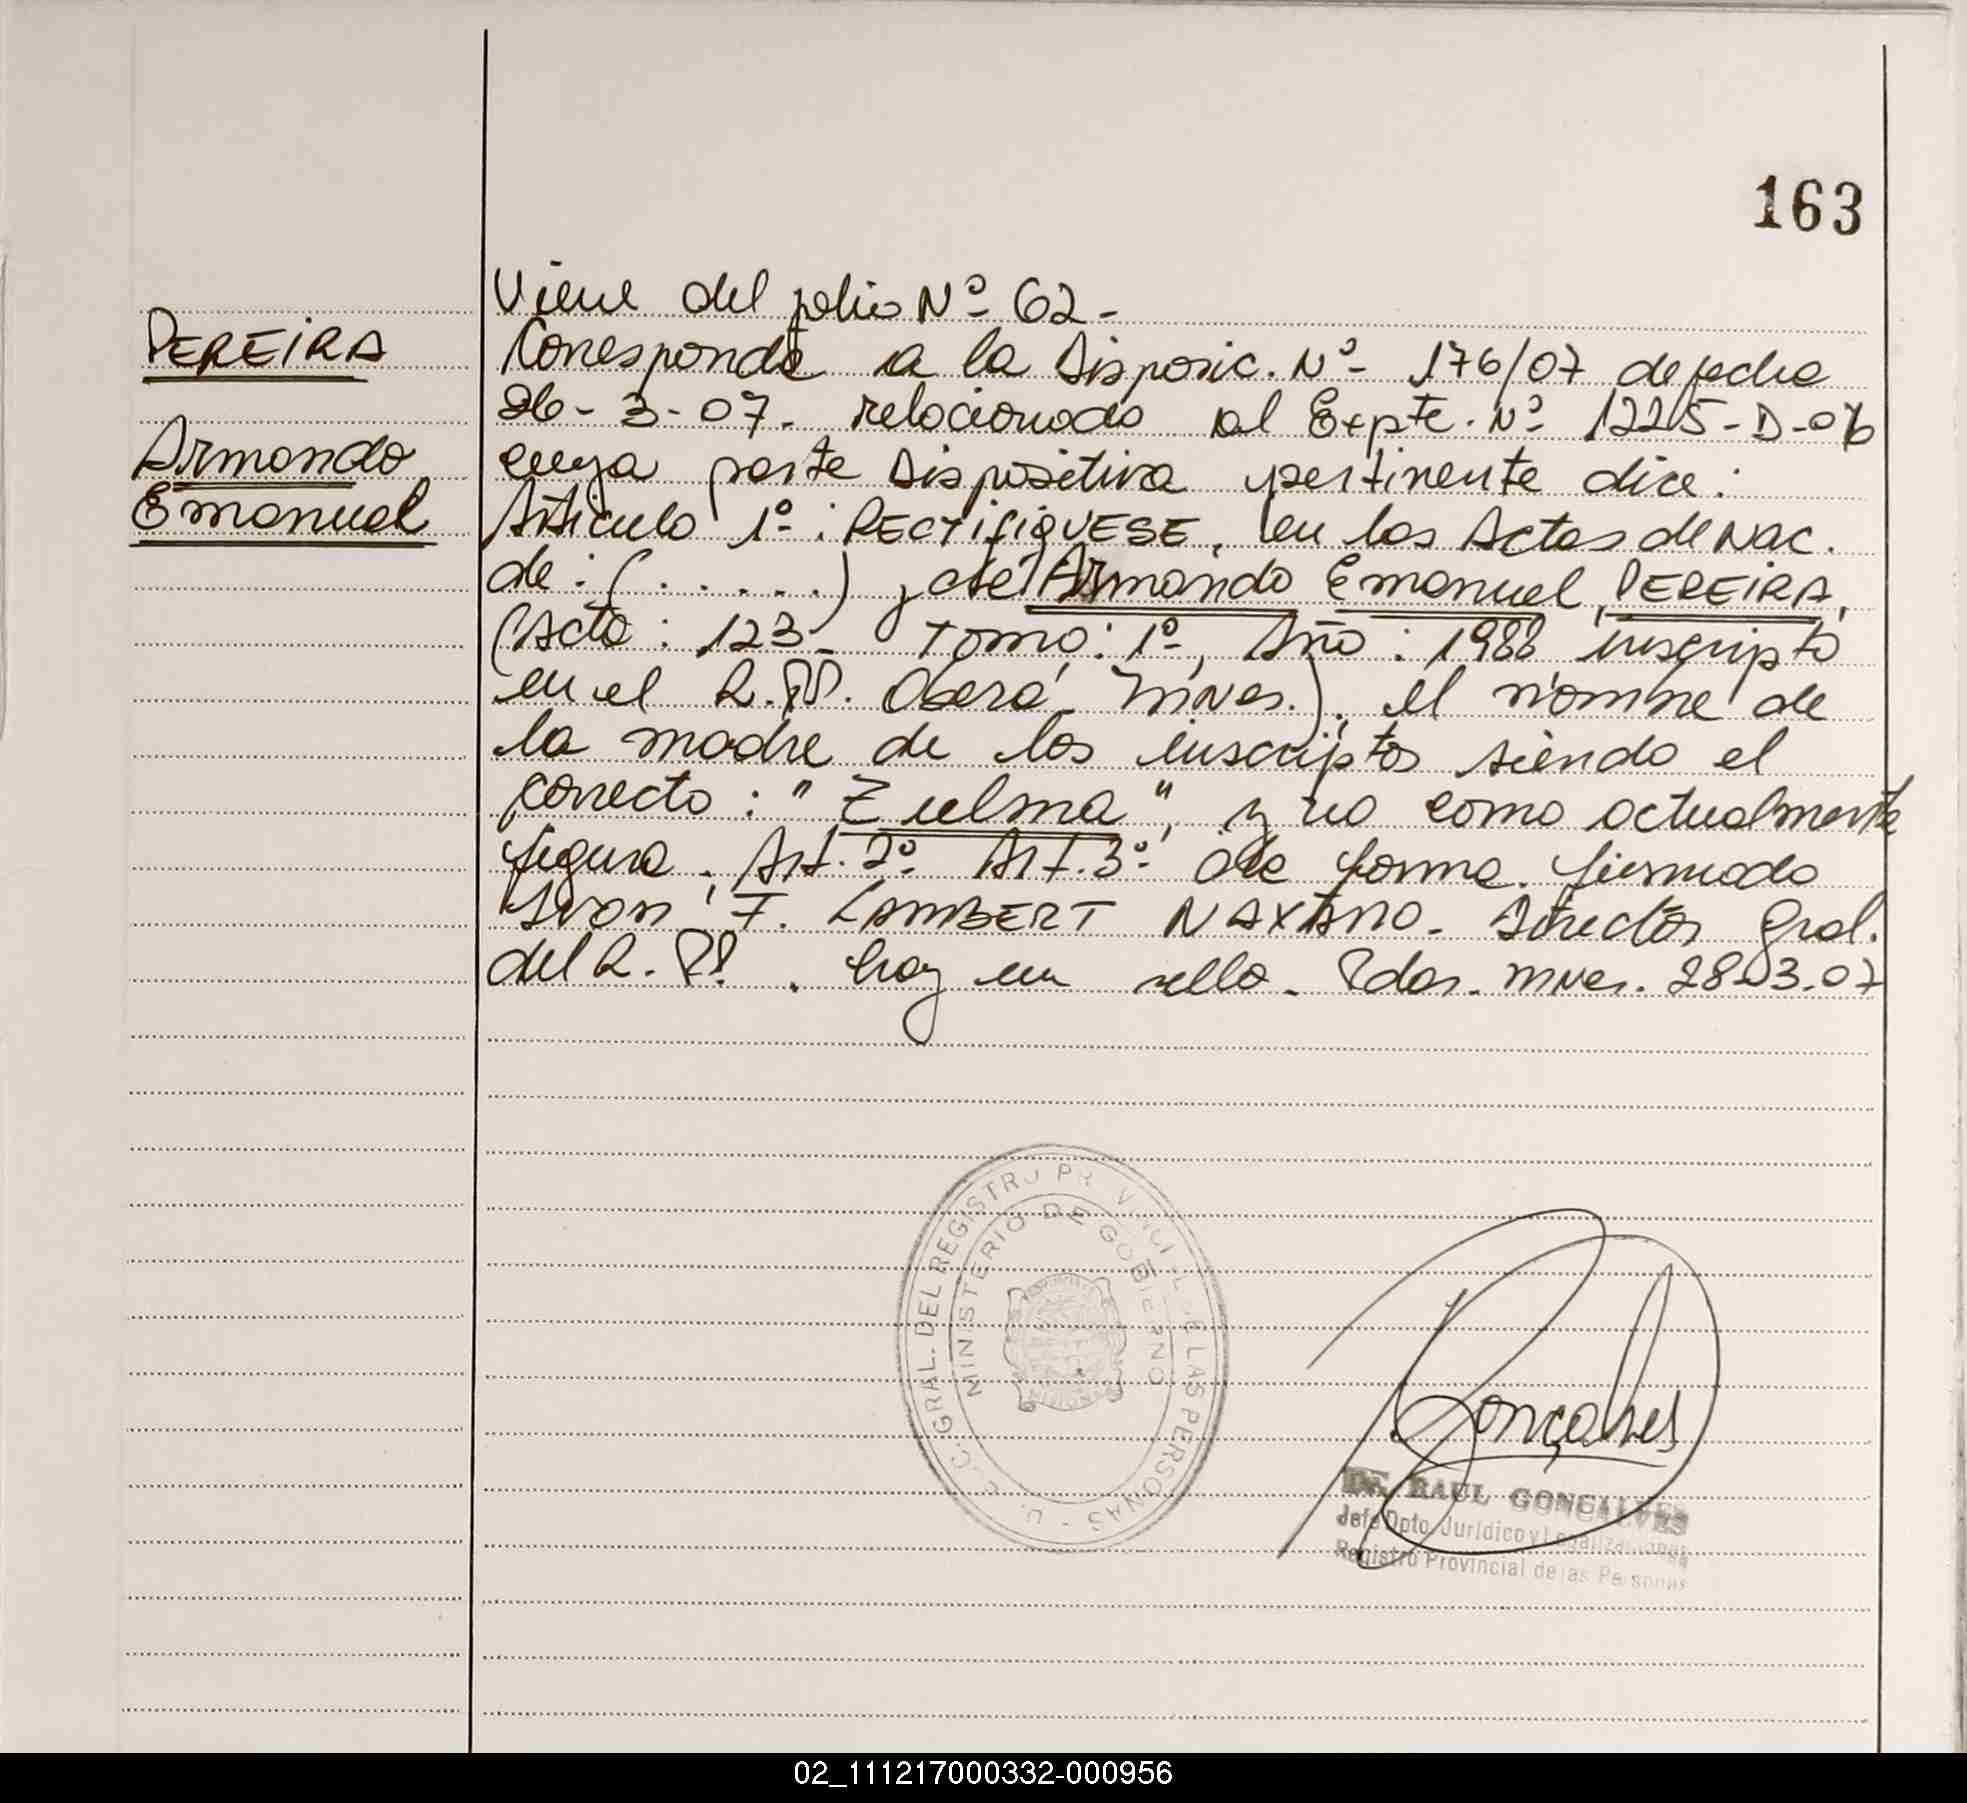 163
Viene del folio Nº 62-
PEREIRA
Corresponde a la Disposic. Nº 176/07 de fecha
26-3-07. relacionado al Expte. Nº 1225-D-06
Armando
cuya parte Dispositiva pertinente dice:
Emanuel
Articulo 1º: RECTIFIQUESE, en las Actas de Nac.
de: (.....) y de Armando Emanuel PEREIRA,
(Acta: 123- Tomo: 1º, Año: 1988 inscripto
en el R.PP. Oberá Mnes.), el nombre de
la madre de los inscriptos siendo el
correcto: "Zulma", y no como actualmente
figura. Art. 2º Art. 3º de forma. firmado
Ivan F. LAMBERT Director Gral.
del R.PP. hay un sello. Pdas. Mnes. 28-3-07
GRAL. DEL REGISTRO PROVINCIAL DE LAS PERSONAS
MINISTERIO DE GOBIERNO
Gonçalves
Dr. RAUL GONCALVES
Jefe Dpto. Jurídico y Legalizaciones
Registro Provincial de las Personas
02_111217000332-000956